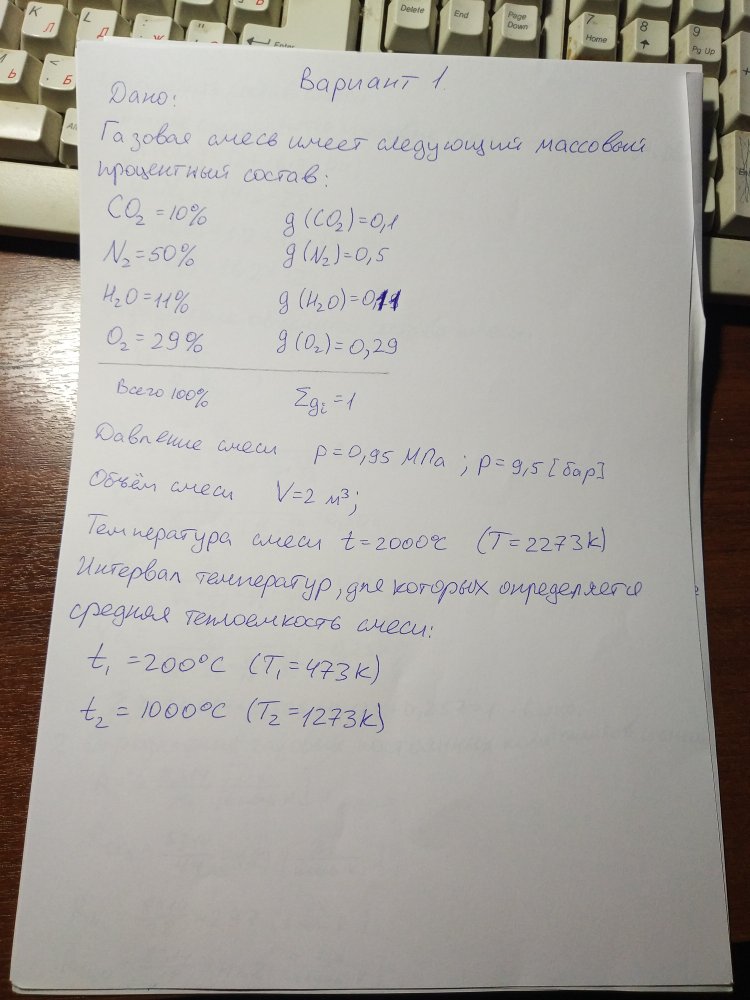 Delete
End
Page Down
7 Home
8
9 Pg Up
К Л
L Д
Enter
Вариант 1.
Дано:
Газовая смесь имеет следующий массовый
процентный состав:
CO₂ = 10% g (CO₂) = 0,1
N₂ = 50% g (N₂) = 0,5
H₂O = 11% g (H₂O) = 0,11
O₂ = 29% g (O₂) = 0,29
Всего 100% Σgᵢ = 1
Давление смеси p = 0,95 МПа ; p = 9,5 [бар]
Объём смеси V = 2 м³;
Температура смеси t = 2000°C (T = 2273K)
Интервал температур, для которых определяется
средняя теплоемкость смеси:
t₁ = 200°C (T₁ = 473K)
t₂ = 1000°C (T₂ = 1273K)